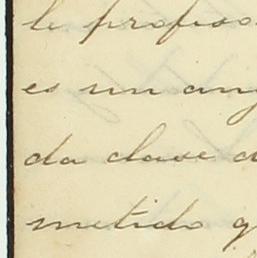 le profeso
es un ang
da clase d
metido q